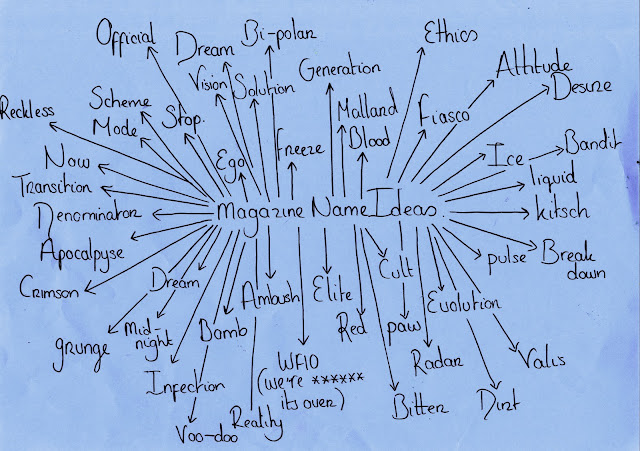 Official
Dream
Bi-polar
Ethics
Vision
Solution
Generation
Attitude
Desire
Reckless
Scheme
Mode
Stop.
Malland
Blood
Fiasco
Now
Ego
Freeze
Ice
Bandit
Transition
liquid
Denominator
Magazine Name Ideas.
kitsch
Apocalpyse
pulse
Break
down
Crimson
Dream
Ambush
Elite
Cult
Evolution
grunge
Mid-
night
Bomb
Red
paw
Infection
WFIO
(we're ******
its over)
Radar
Valis
Voo-doo
Reality
Bitten
Dirt